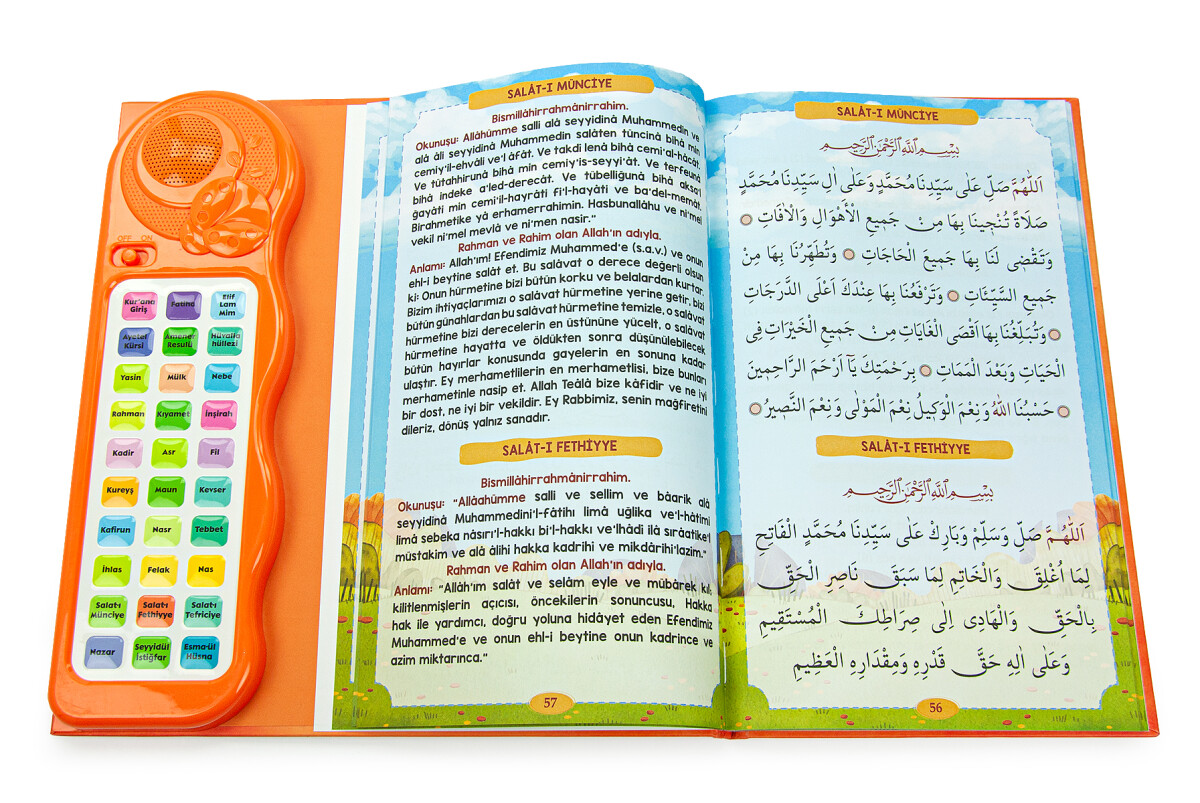 OFF ON
Kur'ana Giriş
Fatiha
Elif Lam Mim
Ayetel Kürsi
Amene Resulü
Hüvalla hüllezi
Yasin
Mülk
Nebe
Rahman
Kıyamet
İnşirah
Kadir
Asr
Fil
Kureyş
Maun
Kevser
Kafirun
Nasr
Tebbet
İhlas
Felak
Nas
Salat-ı Münciye
Salat-ı Fethiyye
Salat-ı Tefriciye
Nazar
Seyyidül İstiğfar
Esma-ül Hüsna
SALÂT-I MÜNCİYE
Bismillâhirrahmânirrahim.
Okunuşu: Allâhümme salli alâ seyyidinâ Muhammedin ve
alâ âli seyyidinâ Muhammedin salâten tüncinâ bihâ min
cemiy'il-ehvâli ve'l âfât. Ve takdi lenâ bihâ cemi'al-hâcât,
Ve tütahhirunâ bihâ min cemiy'is-seyyi'ât. Ve terfeunâ
bihâ indeke a'led-derecât. Ve tübelliğunâ bihâ aksa'l
ğayâti min cemi'il-hayrâti fi'l-hayâti ve ba'del-memât,
Birahmetike yâ erhamerrahimin. Hasbunallâhu ve ni'mel
vekil ni'mel mevlâ ve ni'men nasir."
Rahman ve Rahim olan Allah'ın adıyla.
Anlamı: Allah'ım! Efendimiz Muhammed'e (s.a.v.) ve onun
ehl-i beytine salât et. Bu salâvat o derece değerli olsun
ki: Onun hürmetine bizi bütün korku ve belalardan kurtar.
Bizim ihtiyaçlarımızı o salâvat hürmetine yerine getir, bizi
bütün günahlardan bu salâvat hürmetine temizle, o salâvat
hürmetine bizi derecelerin en üstününe yücelt, o salâvat
hürmetine hayatta ve öldükten sonra düşünülebilecek
bütün hayırlar konusunda gayelerin en sonuna kadar
ulaştır. Ey merhametlilerin en merhametlisi, bize bunları
merhametinle nasip et. Allah Teâlâ bize kâfidir ve ne iyi
bir dost, ne iyi bir vekildir. Ey Rabbimiz, senin mağfiretini
dileriz, dönüş yalnız sanadır.
SALÂT-I FETHİYYE
Bismillâhirrahmânirrahim.
Okunuşu: "Allâahümme salli ve sellim ve bâarik alâ
seyyidinâ Muhammedini'l-fâtihı limâ uğlika ve'l-hâtimi
limâ sebeka nâsırı'l-hakkı bi'l-hakkı ve'lhâdi ilâ sırââtike'l
müstakim ve alâ âlihi hakka kadrihi ve mikdârihi'lazim."
Rahman ve Rahim olan Allah'ın adıyla.
Anlamı: "Allâh'ım salât ve selâm eyle ve mübârek kıl;
kilitlenmişlerin açıcısı, öncekilerin sonuncusu, Hakka
hak ile yardımcı, doğru yoluna hidâyet eden Efendimiz
Muhammed'e ve onun ehl-i beytine onun kadrince ve
azim miktarınca."
57
SALÂT-I MÜNCİYE
بِسْمِ اللّٰهِ الرَّحْمٰنِ الرَّحِيمِ
اَللّٰهُمَّ صَلِّ عَلٰى سَيِّدِنَا مُحَمَّدٍ وَعَلٰى اٰلِ سَيِّدِنَا مُحَمَّدٍ
صَلَاةً تُنْجِينَا بِهَا مِنْ جَمِيعِ الْأَهْوَالِ وَالْاٰفَاتِ
وَتَقْضِى لَنَا بِهَا جَمِيعَ الْحَاجَاتِ وَتُطَهِّرُنَا بِهَا مِنْ
جَمِيعِ السَّيِّئَاتِ وَتَرْفَعُنَا بِهَا عِنْدَكَ اَعْلَى الدَّرَجَاتِ
وَتُبَلِّغُنَا بِهَا اَقْصَى الْغَايَاتِ مِنْ جَمِيعِ الْخَيْرَاتِ فِى
الْحَيَاتِ وَبَعْدَ الْمَمَاتِ بِرَحْمَتِكَ يَآ اَرْحَمَ الرَّاحِمِينَ
حَسْبُنَا اللّٰهُ وَنِعْمَ الْوَكِيلُ نِعْمَ الْمَوْلٰى وَنِعْمَ النَّصِيرُ
SALÂT-I FETHİYYE
بِسْمِ اللّٰهِ الرَّحْمٰنِ الرَّحِيمِ
اَللّٰهُمَّ صَلِّ وَسَلِّمْ وَبَارِكْ عَلٰى سَيِّدِنَا مُحَمَّدٍ الْفَاتِحِ
لِمَا اُغْلِقَ وَالْخَاتِمِ لِمَا سَبَقَ نَاصِرِ الْحَقِّ
بِالْحَقِّ وَالْهَادِى اِلٰى صِرَاطِكَ الْمُسْتَقِيمِ
وَعَلٰى اٰلِهِ حَقَّ قَدْرِهِ وَمِقْدَارِهِ الْعَظِيمِ
56